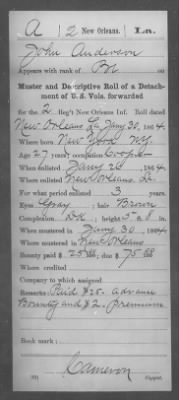 A | 2 New Orleans. | La.
John Anderson
Appears with rank of Pvt
Muster and Descriptive Roll of a Detachment
ment of U. S. Vols. forwarded
for the 2 Reg't New Orleans Inf. Roll dated
New Orleans La Jany 30, 1864
Where born New York N.Y.
Age 27 y'rs; occupation Cooper
When enlisted Jany 20, 1864
Where enlisted New Orleans La.
For what period enlisted 3 years.
Eyes Gray; hair Brown
Complexion Dk; height 5 ft. 8 in.
When mustered in Jany 30, 1864
Where mustered in New Orleans
Bounty paid $ 25 00/100; due $ 75 00/100
Where credited
Company to which assigned
Remarks: Paid $25. advance
Bounty and $2. premium
Book mark:
Cameron
Copyist.